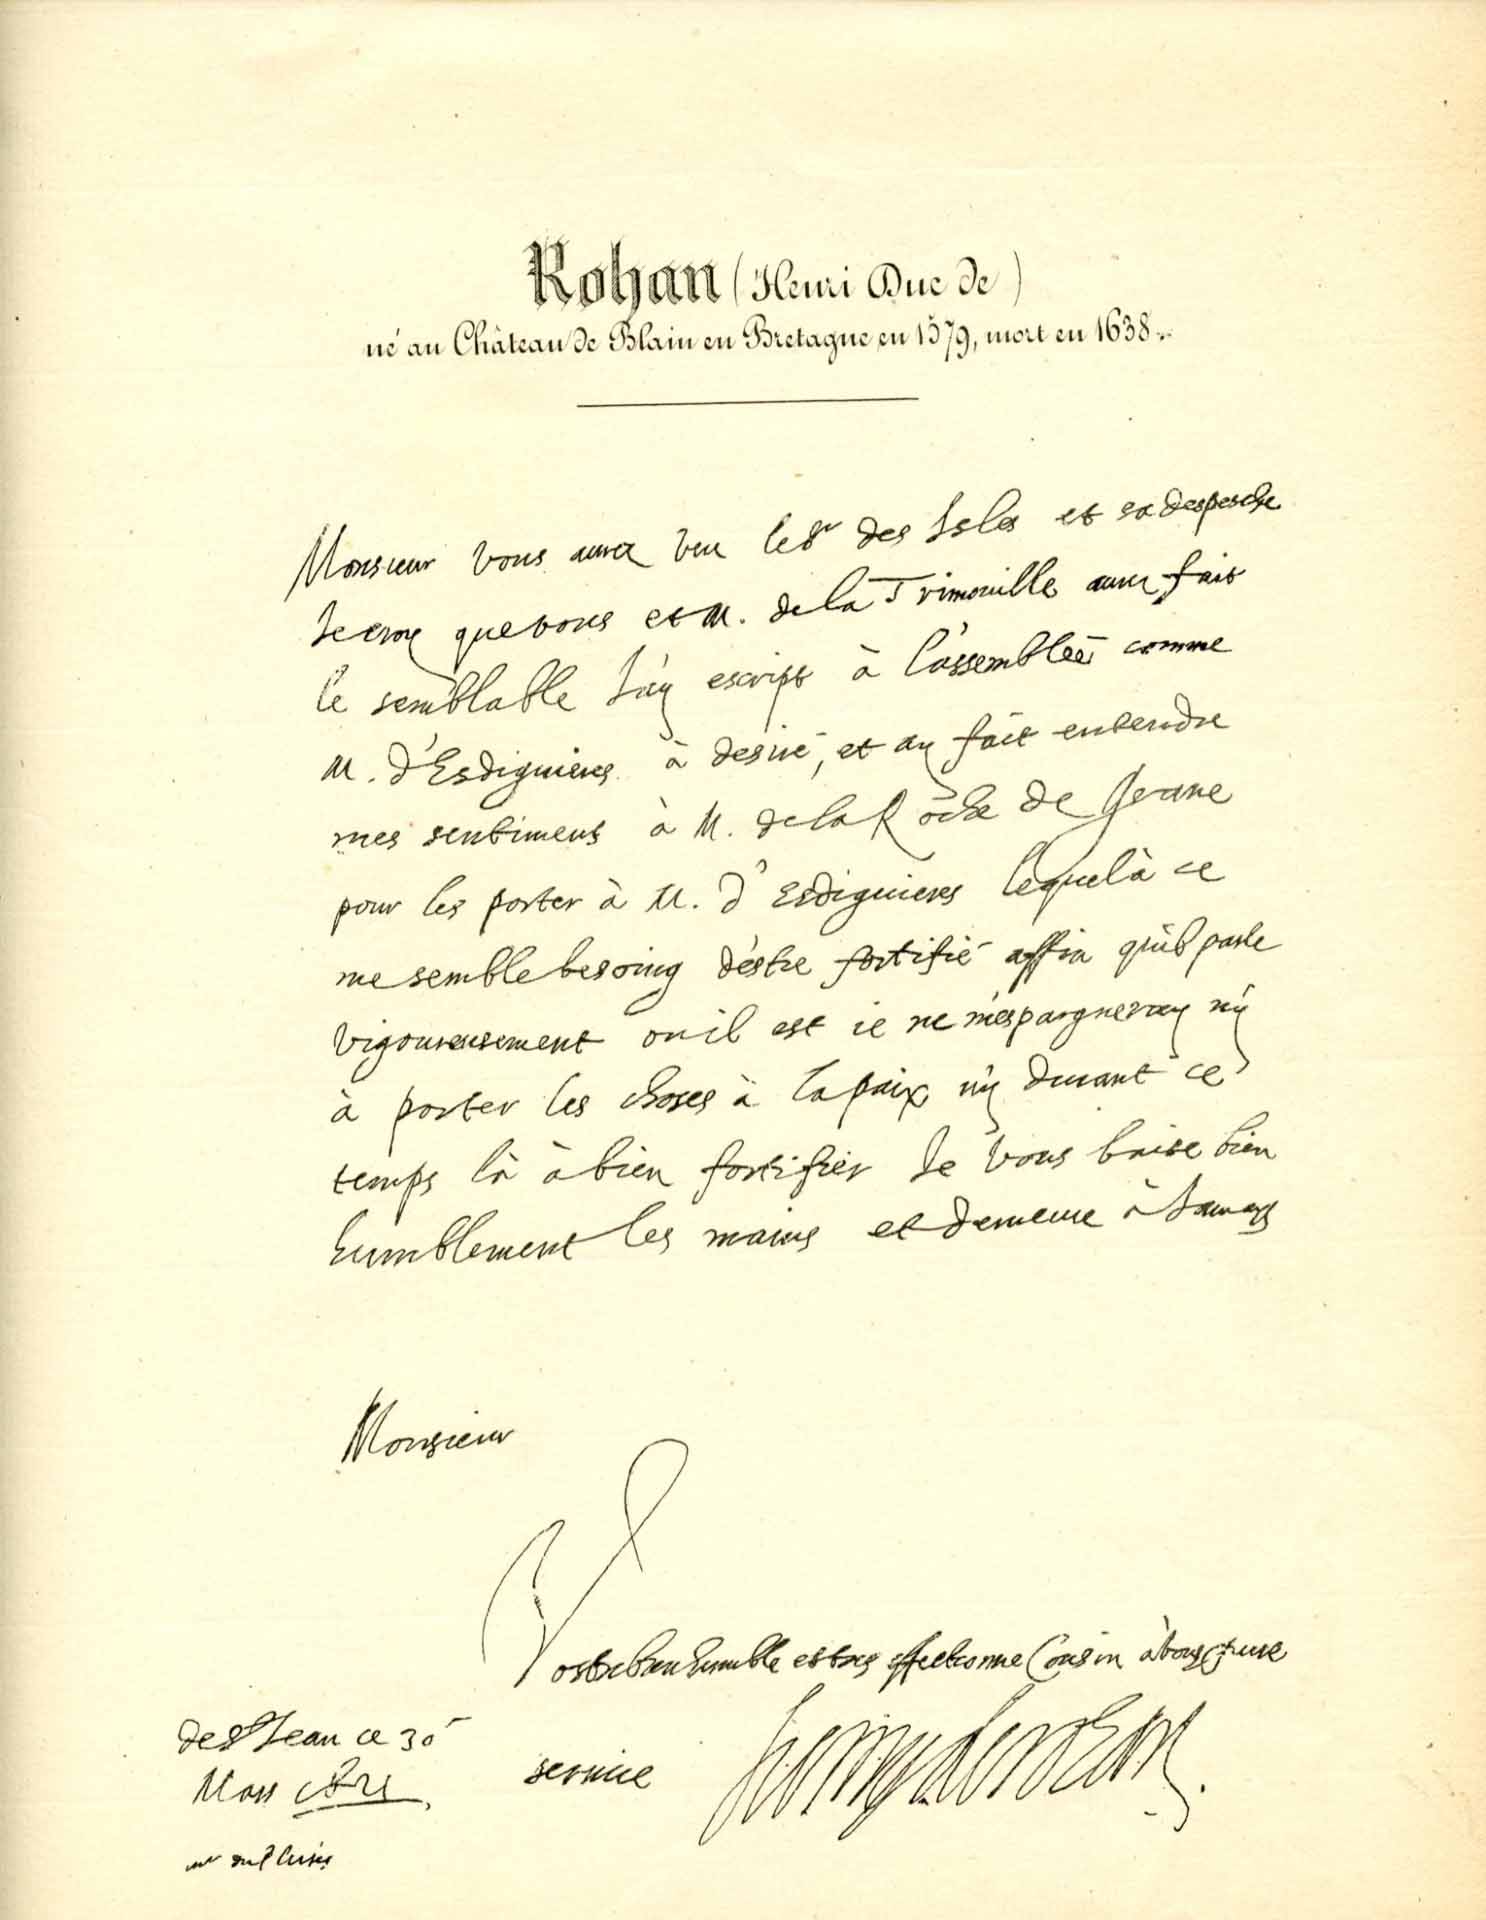 Rohan (Henri Duc de)
né au Château de Blain en Bretagne en 1579, mort en 1638.
Monsieur vous aurez veu le Sr des Isles et sa despesche
Je croy que vous et M. de la Trimouille aurez fait
le semblable J'ay escript à l'assemblée comme
M. d'Esdiguieres à desiré, et ay fait entendre
mes sentimens à M. de la Roche de Grane
pour les porter à M. d'Esdiguieres lequel à ce
me semble besoing d'estre fortifié affin qu'il parle
vigoureusement ou il est ie ne m'espargneray ny
à porter les choses à la paix ny durant ce
temps là à bien fortifier Je vous baise bien
humblement les mains et demeure à Jamays
Monsieur
Vostre bien humble et tres affectionne Cousin à vous faire
service Henry de Rohan.
de St Jean ce 30
Mars
mr du Plessis